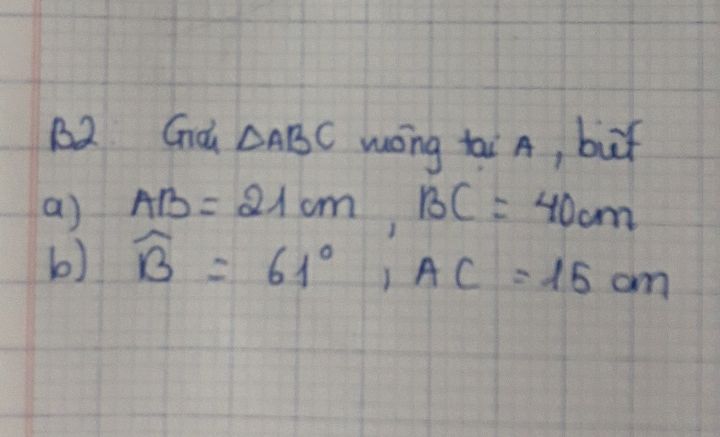 B2 Giải ΔABC vuông tại A, biết
a) AB = 21 cm, BC = 40cm
b) B̂ = 61°, AC = 15 cm